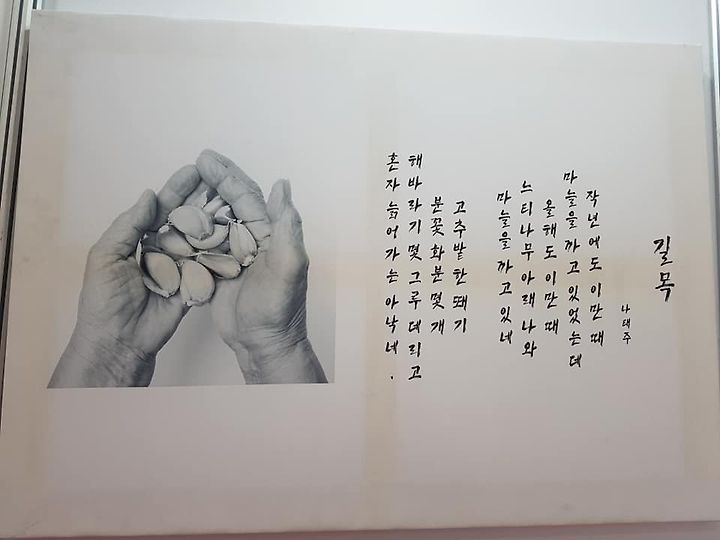 길목
나태주
작년에도 이만 때
마늘을 까고 있었는데
올해도 이만 때
느티나무 아래 나와
마늘을 까고 있네
고추밭 한 뙈기
분꽃 화분 몇 개
해바라기 몇 그루 데리고
혼자 늙어가는 아낙네.